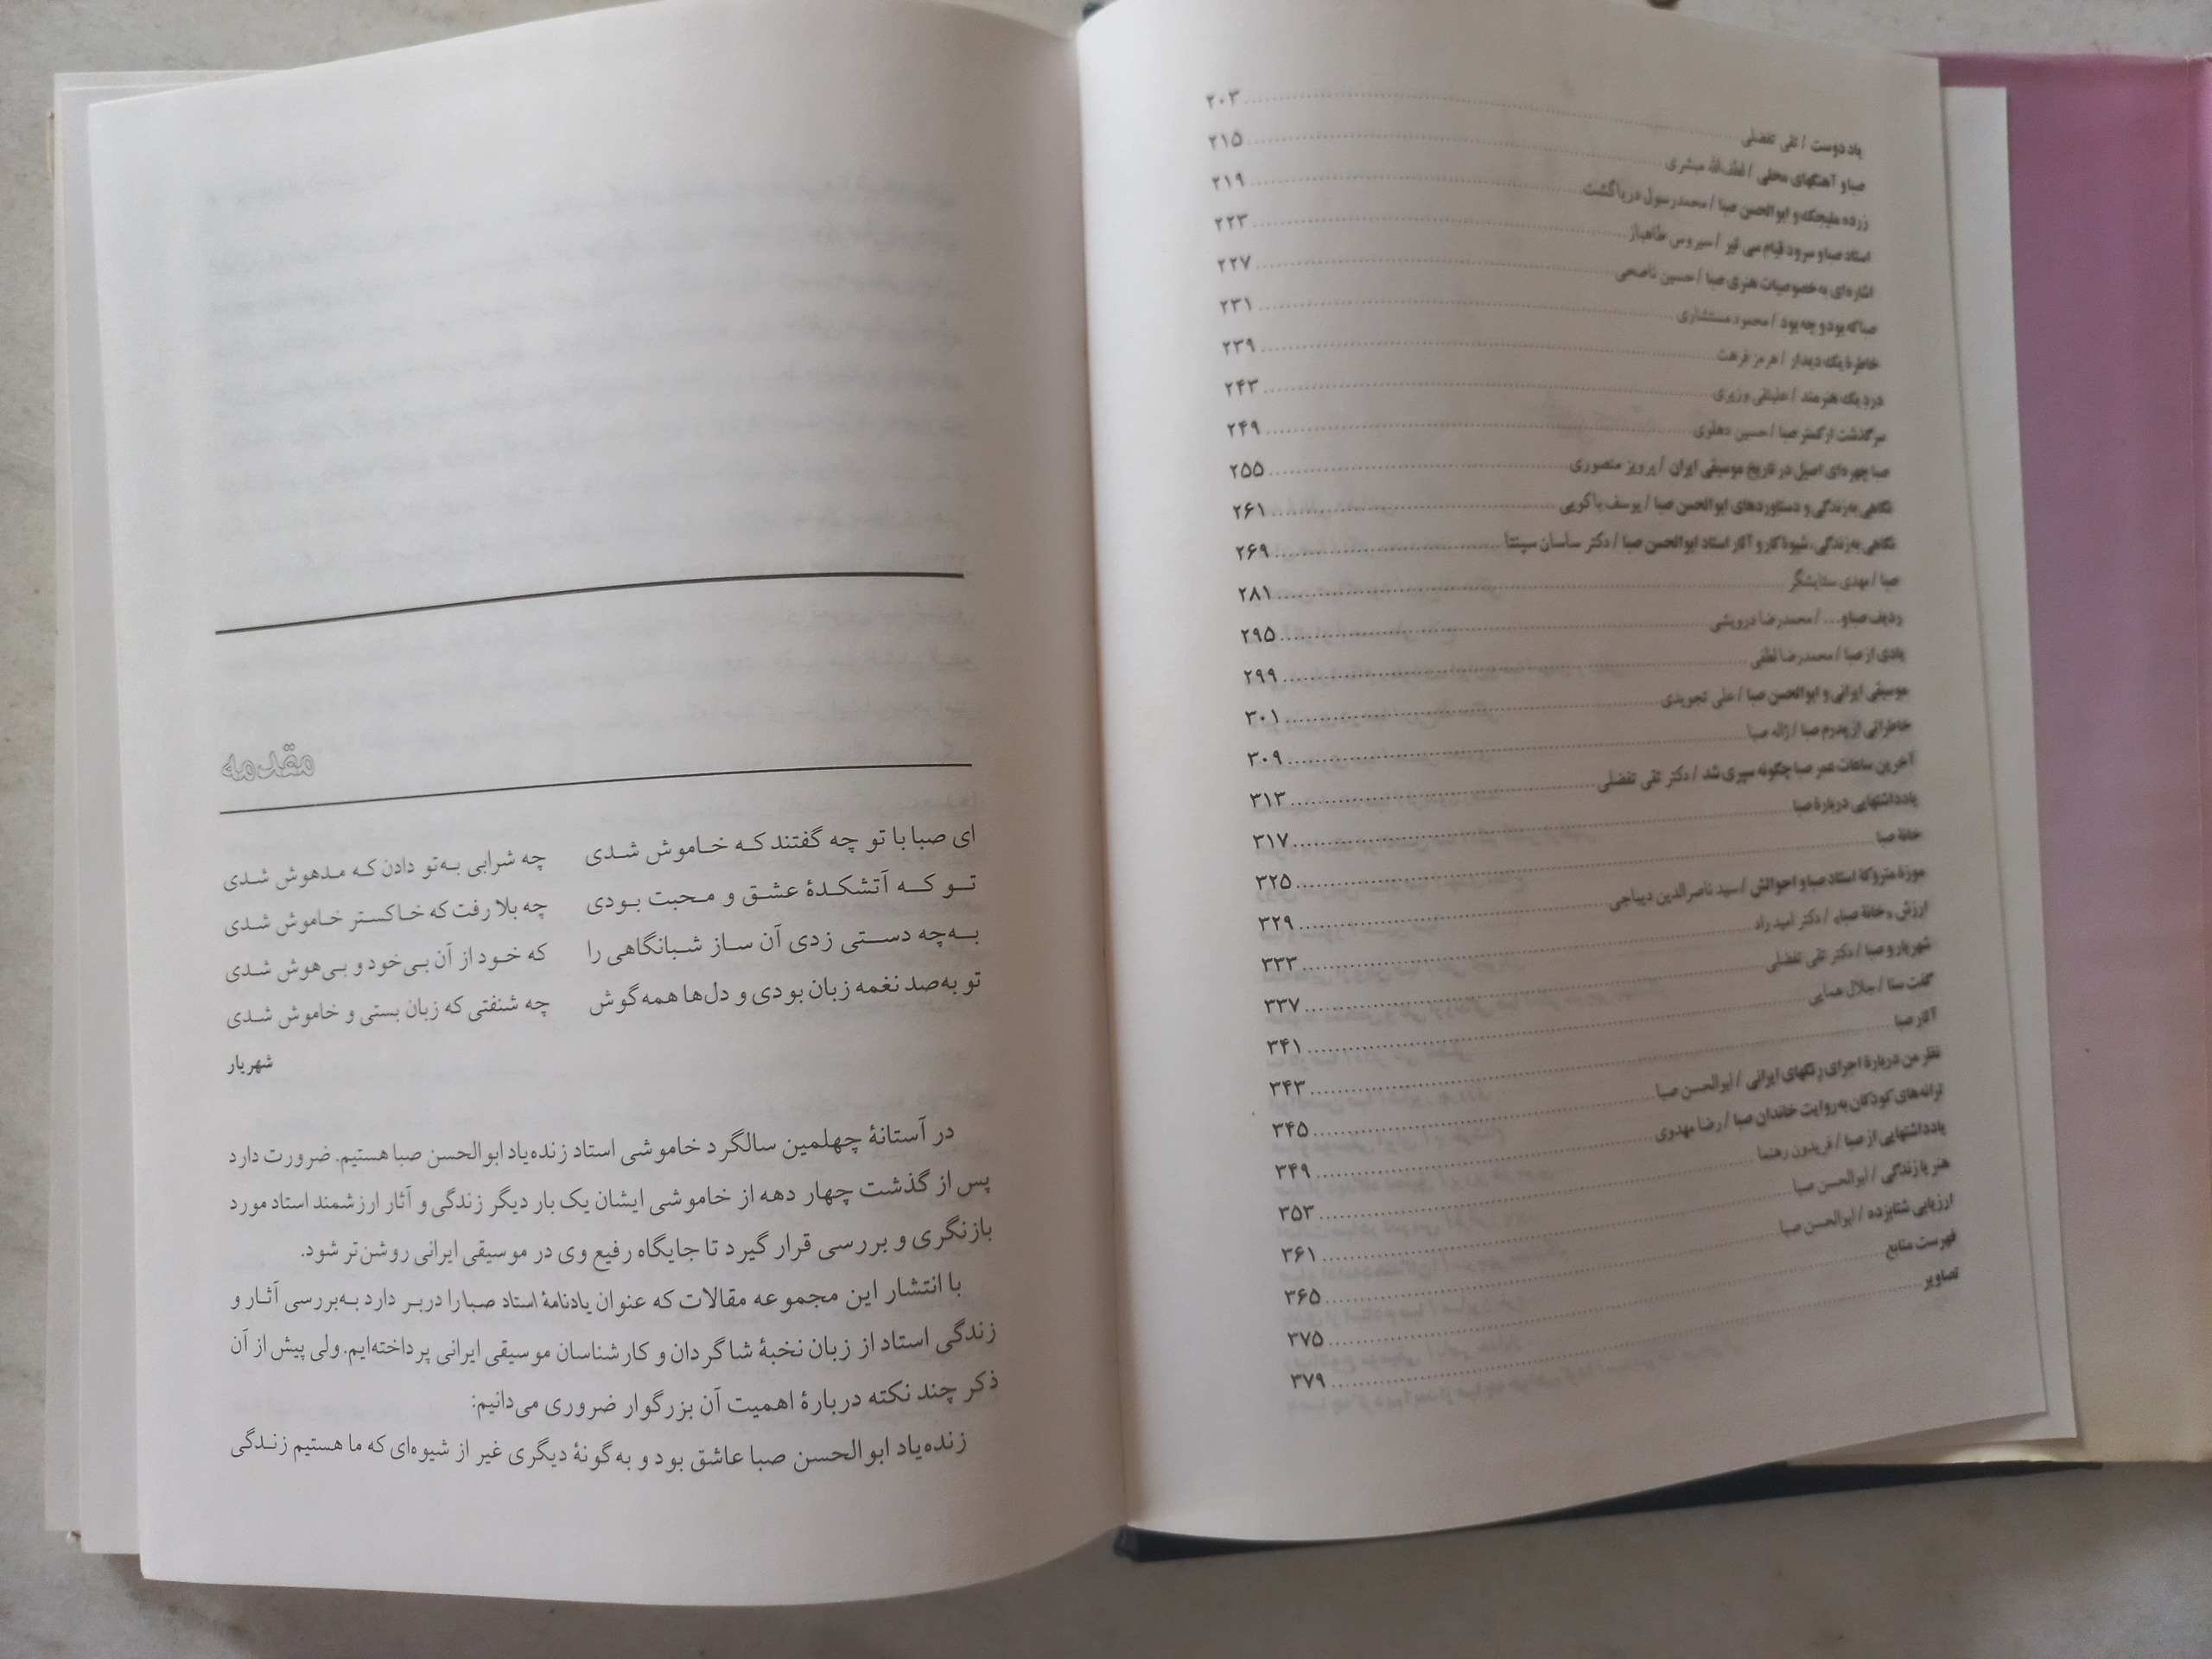 یاد دوست / تقی تفضلی ........ ۲۰۳
صبا و آهنگهای محلی / لطف‌الله مبشری ........ ۲۱۵
زرده ملیجک و ابوالحسن صبا / محمدرسول دریاگشت ........ ۲۱۹
استاد صبا و سرود قیام سی تیر / سیروس طاهباز ........ ۲۲۳
اشاره‌ای به خصوصیات هنری صبا / حسین ناصحی ........ ۲۲۷
صبا که بود و چه بود / محمود مستشاری ........ ۲۳۱
خاطرهٔ یک دیدار / هرمز فرهت ........ ۲۳۹
درد یک هنرمند / علینقی وزیری ........ ۲۴۳
سرگذشت ارکستر صبا / حسین دهلوی ........ ۲۴۹
صبا چهره‌ای اصیل در تاریخ موسیقی ایران / پرویز منصوری ........ ۲۵۵
نگاهی به‌زندگی و دستاوردهای ابوالحسن صبا / یوسف باکویی ........ ۲۶۱
نگاهی به‌زندگی، شیوهٔ کار و آثار استاد ابوالحسن صبا / دکتر ساسان سپنتا ........ ۲۶۹
صبا / مهدی ستایشگر ........ ۲۸۱
ردیف صبا و... / محمدرضا درویشی ........ ۲۹۵
یادی از صبا / محمدرضا لطفی ........ ۲۹۹
موسیقی ایرانی و ابوالحسن صبا / علی تجویدی ........ ۳۰۱
خاطراتی از پدرم صبا / ژاله صبا ........ ۳۰۹
آخرین ساعات عمر صبا چگونه سپری شد / دکتر تقی تفضلی ........ ۳۱۳
یادداشتهایی دربارهٔ صبا ........ ۳۱۷
خانهٔ صبا ........ ۳۲۵
موزهٔ متروکهٔ استاد صبا و احوالش / سید ناصرالدین دیباجی ........ ۳۲۹
ارزش «خانهٔ صبا» / دکتر امید راد ........ ۳۳۳
شهریار و صبا / دکتر تقی تفضلی ........ ۳۳۷
گفت سنا / جلال همایی ........ ۳۴۱
آثار صبا ........ ۳۴۳
نظر من دربارهٔ اجرای رنگهای ایرانی / ابوالحسن صبا ........ ۳۴۵
ترانه‌های کودکان به روایت خاندان صبا / رضا مهدوی ........ ۳۴۹
یادداشتهایی از صبا / فریدون رهنما ........ ۳۵۳
هنر یا زندگی / ابوالحسن صبا ........ ۳۶۱
ارزیابی شتابزده / ابوالحسن صبا ........ ۳۶۵
فهرست منابع ........ ۳۷۵
تصاویر ........ ۳۷۹
مقدمه
ای صبا با تو چه گفتند که خاموش شدی چه شرابی به‌تو دادن که مدهوش شدی
تو که آتشکدهٔ عشق و محبت بودی چه بلا رفت که خاکستر خاموش شدی
به‌چه دستی زدی آن ساز شبانگاهی را که خود از آن بی‌خود و بی‌هوش شدی
تو به‌صد نغمه زبان بودی و دل‌ها همه گوش چه شنفتی که زبان بستی و خاموش شدی
شهریار
در آستانهٔ چهلمین سالگرد خاموشی استاد زنده‌یاد ابوالحسن صبا هستیم. ضرورت دارد
پس از گذشت چهار دهه از خاموشی ایشان یک بار دیگر زندگی و آثار ارزشمند استاد مورد
بازنگری و بررسی قرار گیرد تا جایگاه رفیع وی در موسیقی ایرانی روشن‌تر شود.
با انتشار این مجموعه مقالات که عنوان یادنامهٔ استاد صبا را دربر دارد به‌بررسی آثار و
زندگی استاد از زبان نخبهٔ شاگردان و کارشناسان موسیقی ایرانی پرداخته‌ایم. ولی پیش از آن
ذکر چند نکته دربارهٔ اهمیت آن بزرگوار ضروری می‌دانیم:
زنده‌یاد ابوالحسن صبا عاشق بود و به‌گونهٔ دیگری غیر از شیوه‌ای که ما هستیم زندگی